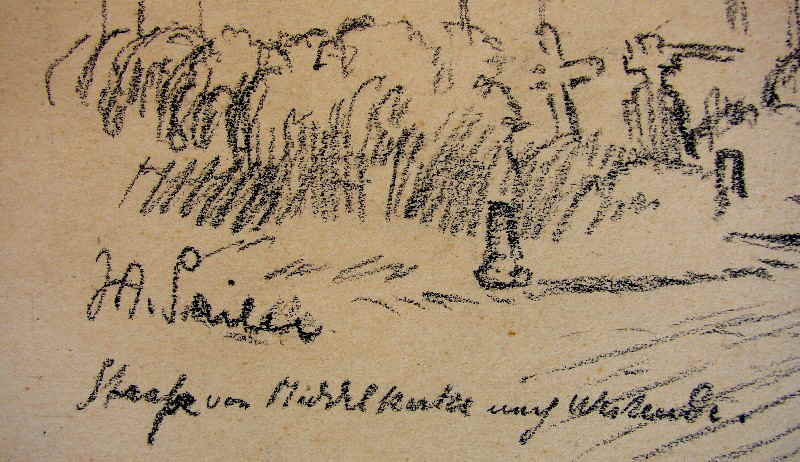 Straße von Middelkerke nach Westende.